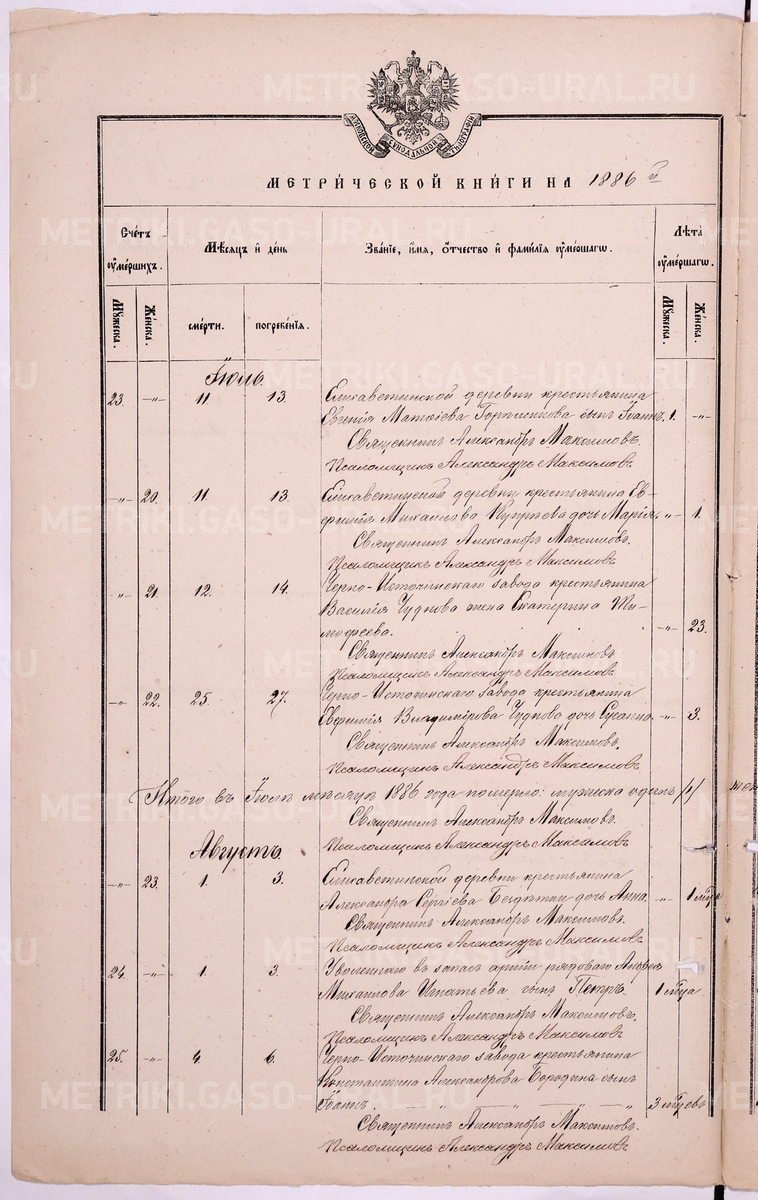 МОСКОВСКОЙ СѴНОДАЛЬНОЙ ТИПОГРАФІИ
МЕТРИ́ЧЕСКОЙ КНИ́ГИ НА 1886 й
Сче́тъ ᲂумéршихъ.
Мѣсѧцъ и҆ де́нь
Зва́нїе, и҆́мѧ, ѻ҆́тчество и҆ фами́лїѧ ᲂумéршагѡ.
Лѣ́та ᲂумéршагѡ.
Мꙋ́жеска.
Же́нска.
сме́рти.
погребе́нїѧ.
Мꙋ́жеска.
Же́нска.
Іюль.
23. -"- 11 13. Елизаветинской деревни крестьянина
Евгенія Матвѣева сынъ Іоаннъ. 1. -"-
Священникъ Александръ Максимовъ.
Псаломщикъ Александръ Максимовъ
-"- 20. 11. 13. Елизаветинской деревни крестьянина Ев-
фимія Михаилова дочь Марія. -"- 1.
Священникъ Александръ Максимовъ.
Псаломщикъ Александръ Максимовъ
-"- 21. 12. 14. Черно-Источинскаго завода крестьянина
Василія Чуднова жена Екатерина Ти-
мофеева. -"- 23.
Священникъ Александръ Максимовъ
Псаломщикъ Александръ Максимовъ
-"- 22. 25. 27. Черно-Источинскаго завода крестьянина
Евфимія Владимірова Чуднова дочь Сусанна. -"- 3.
Священникъ Александръ Максимовъ.
Псаломщикъ Александръ Максимовъ
Итого въ Іюлѣ мѣсяцѣ 1886 года померло: мужеска одинъ (1) жен
Священникъ Александръ Максимовъ.
Псаломщикъ Александръ Максимовъ
Августъ.
-"- 23. 1. 3. Елизаветинской деревни крестьянина
Александра Сергіева дочь Анна. -"- 1 мѣца
Священникъ Александръ Максимовъ.
Псаломщикъ Александръ Максимовъ
24. -"- 1. 3. Уволеннаго въ запасъ арміи рядоваго Андрея
Михаилова Игнатьева сынъ Петръ. 1 мѣца
Священникъ Александръ Максимовъ.
Псаломщикъ Александръ Максимовъ
25. -"- 4. 6. Черно-Источинскаго завода крестьянина
Константина Александрова Бородина сынъ
Іоаннъ. 3 мѣцевъ
Священникъ Александръ Максимовъ.
Псаломщикъ Александръ Максимовъ
METRIKI.GASO-URAL.RU